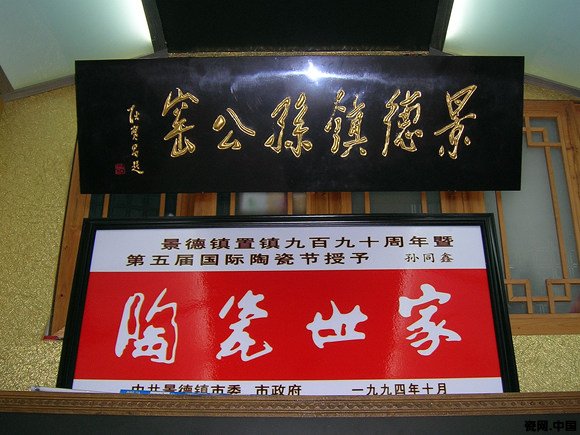 景德鎮孫公窑
景德镇置镇九百九十周年暨
第五届国际陶瓷节授予 孙同鑫
陶瓷世家
中共景德镇市委 市政府 一九九四年十月
瓷网.中国